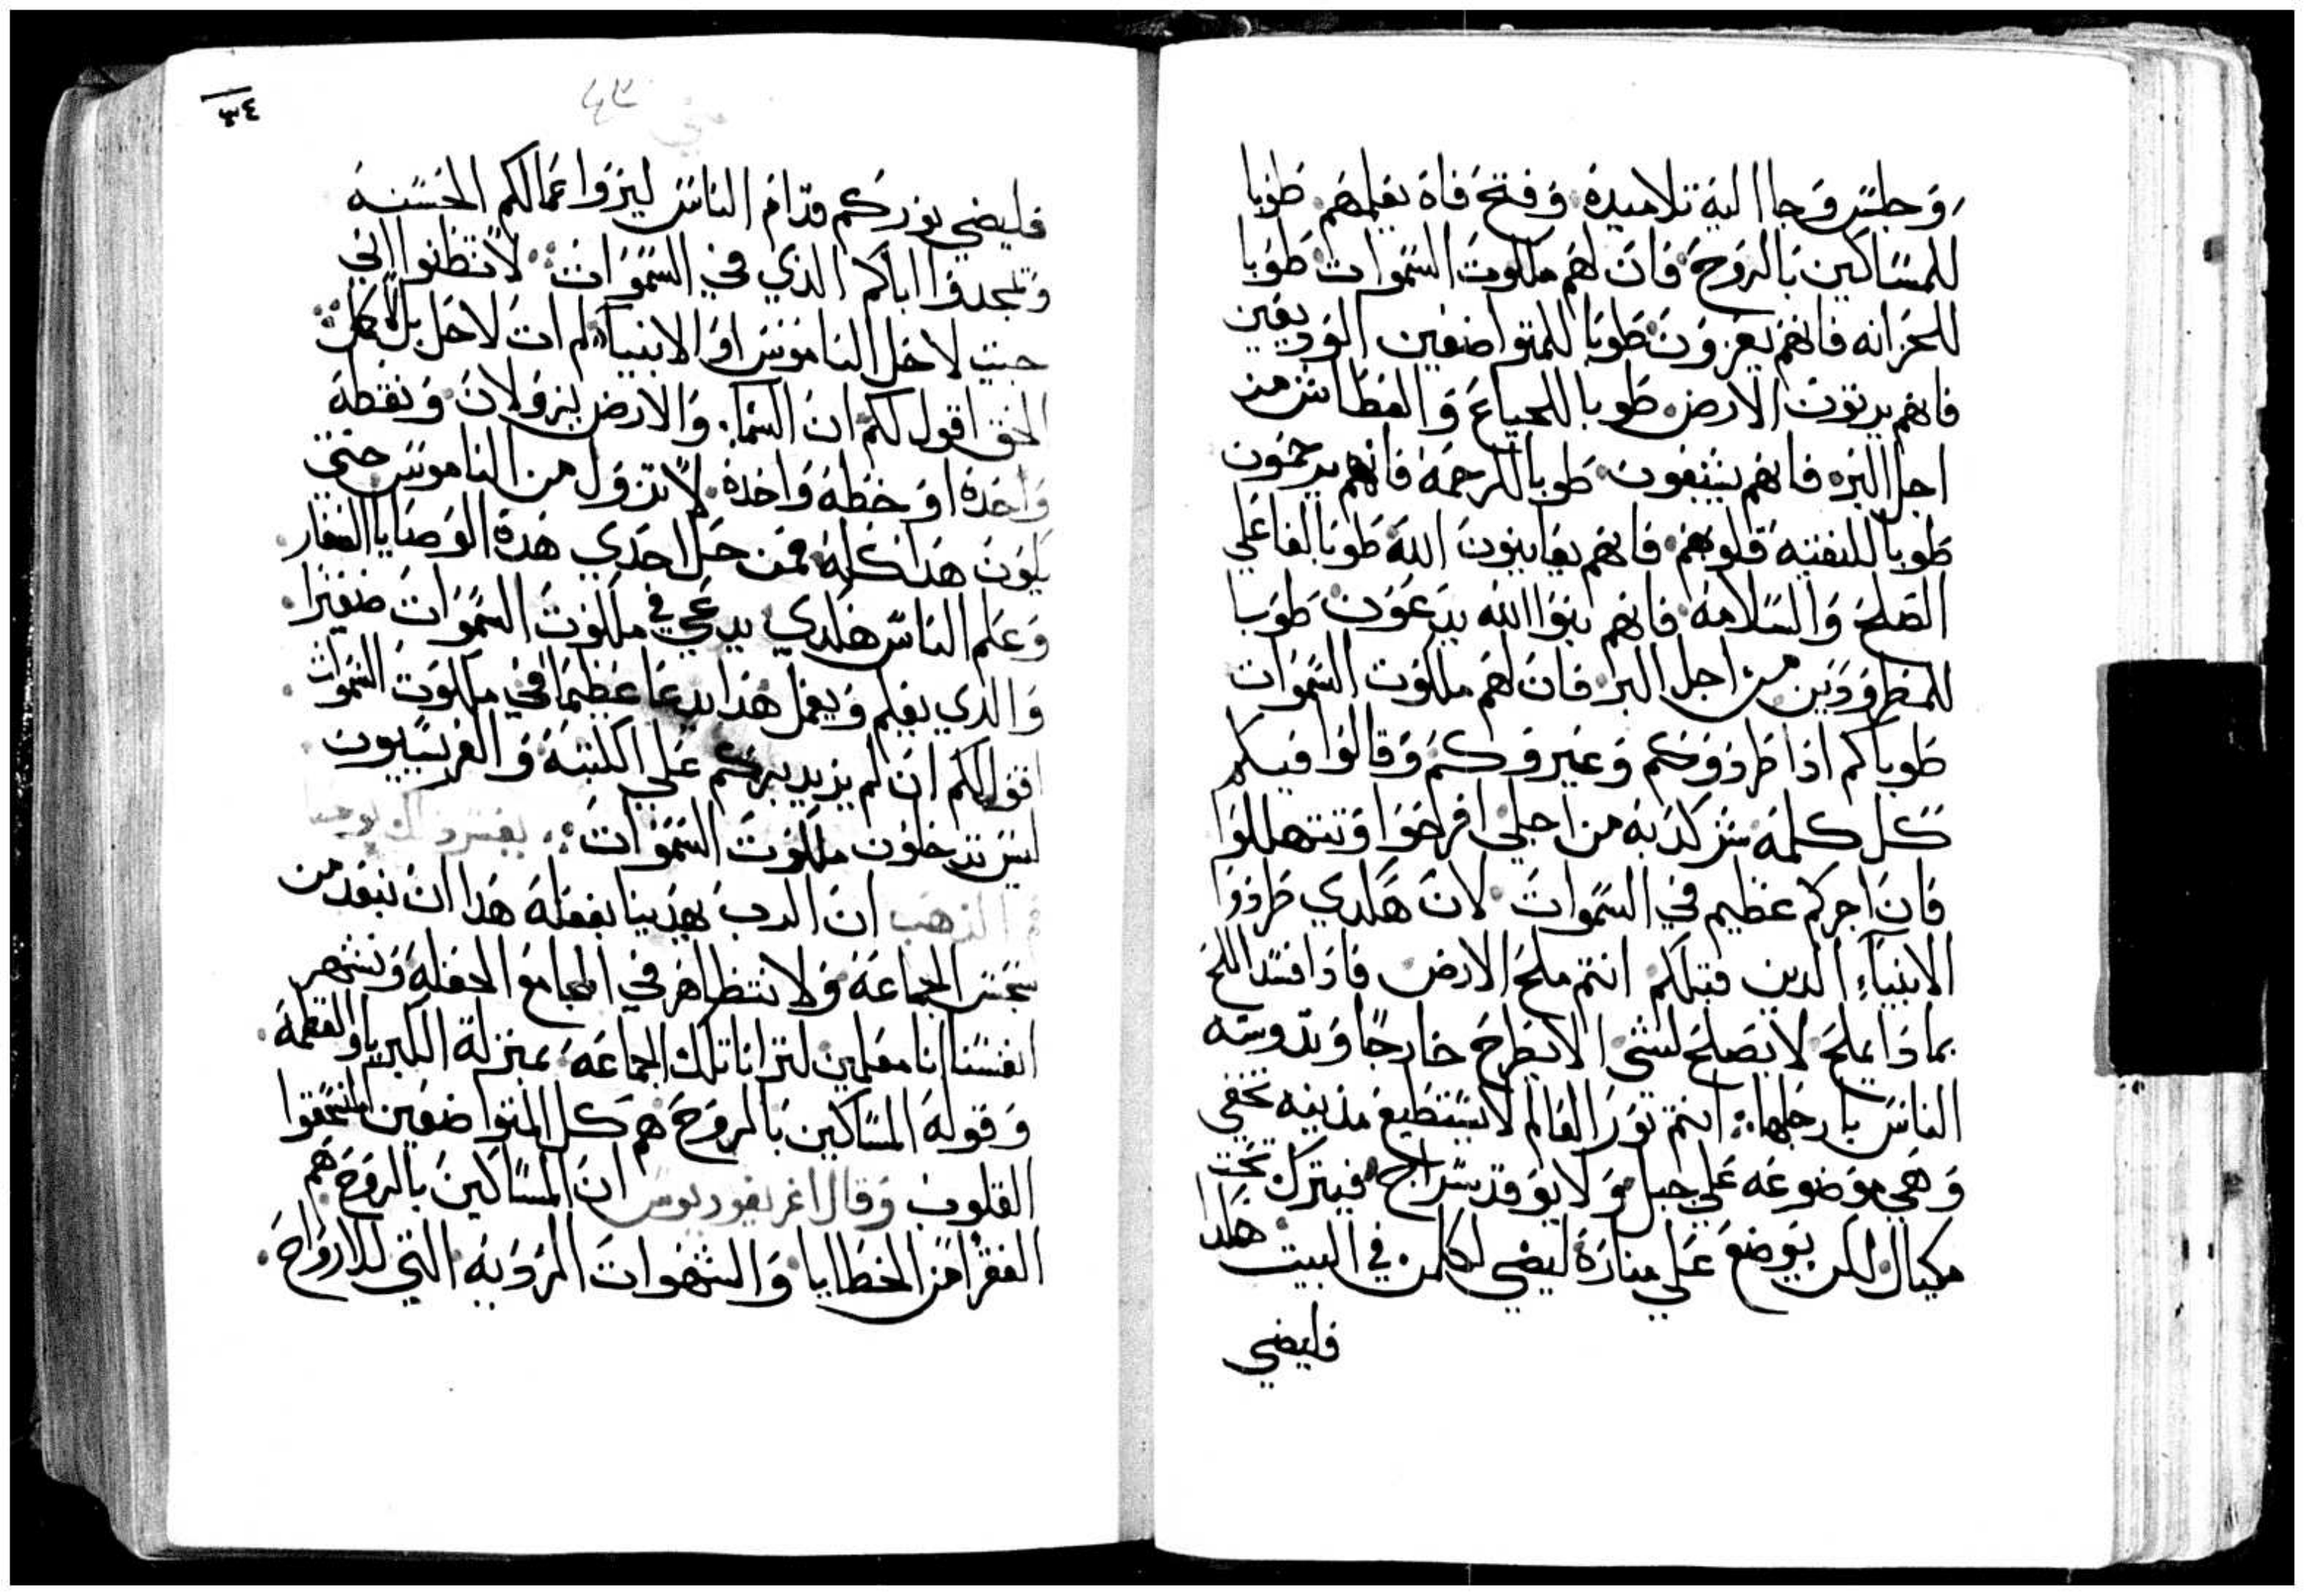 وجلس وجا اليه تلاميده وفتح فاه يعلمهم طوبا
للمساكين بالروح فان لهم ملكوت السموات طوبا
للحزانه فانهم يعزون طوبا للمتواضعين الوديعين
فانهم يرتون الارض طوبا للجياع والعطاش من
اجل البره فانهم يشبعون طوبا للرحمه فانهم يرحمون
طوبا للنقيه قلوبهم فانهم يعاينون الله طوبا لفاعلي
الصلح والسلامه فانهم بنوا الله يدعون طوبا
للمطرودين من اجل البر فان لهم ملكوت السموات
طوباكم اذا طردوكم وعيروكم وقالوا فيكم
كل كلمه شر كدبه من اجلي افرحوا وتتهللوا
فان اجركم عظيم في السموات لان هكدي طردوا
الانبياء الدين قبلكم انتم ملح الارض فاذا فسد الملح
بماذا يملح لا يصلح لشي الا يطرح خارجا وتدوسه
الناس بارجلها انتم نور العالم لا يستطيع مدينه تخفي
وهي موضوعه علي جبل ولا يوقد سراج فيترك تحت
مكيال لكن يوضع علي مناره ليضي لكلمن في البيت هكدا
فليضي
٣٤
متي
فليضي نوركم قدام الناس ليروا عمالكم الحسنه
وتمجدوا اباكم الذي في السموات لا تظنوا اني
جيت لاحل الناموس او الانبياء لم ات لاحل بل لاكمل
الحق اقول لكم ان السماء والارض ليزولان ونقطه
واحده او خطه واحده لا تزول من الناموس حتي
يكون هدا كله فمن حل احدي هده الوصايا الصغار
وعلم الناس هكدي يدعي في ملكوت السموات صغيرا
والدي يعلم ويعمل هدا يدعا عظيما في ملكوت السموات
اقول لكم ان لم يزيد بركم علي الكتبه والفريسيون
ليس تدخلون ملكوت السموات يفسر ذلك يوحنا
فم الذهب ان الرب يهدينا بفعله هدا ان نبعد من
تجسس الجماعة ولا نتظاهر في المجامع الحفله ونشهر
انفسنا انا معلمين لترانا تلك الجماعه بمنزلة الكبريا والعظمه
وقوله المساكين بالروح هم كل المتواضعين المنسحقوا
القلوب وقال اغريغوريوس ان المساكين بالروح هم
الفقرا من الخطايا والشهوات الرويه التي للارواح